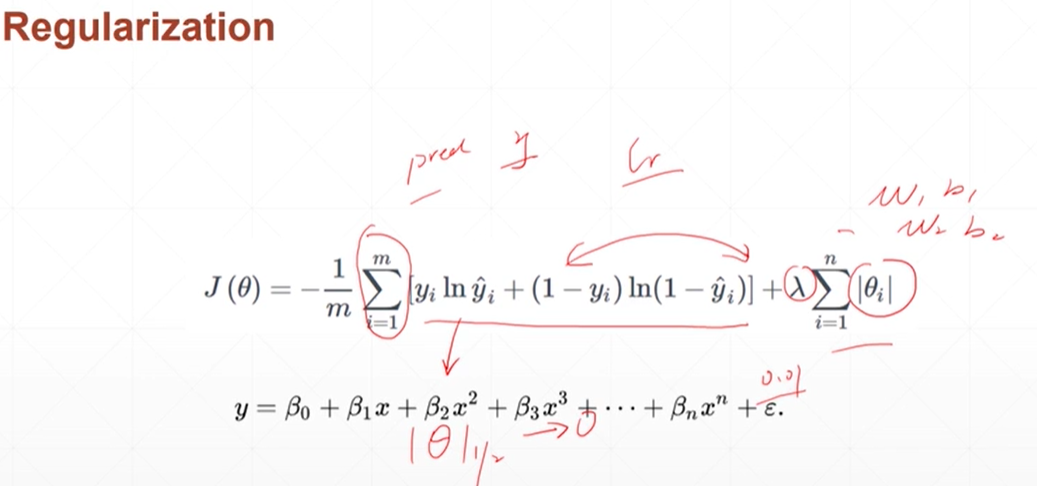 Regularization
pred y
W₁ b₁
W₂ b₂
J(θ) = −\frac{1}{m} \sum_{i=1}^{m} [y_i ln ŷ_i + (1 − y_i) ln(1 − ŷ_i)] + λ \sum_{i=1}^{n} |θ_i|
0.01
y = β₀ + β₁x + β₂x² + β₃x³ + ⋯ + β_n xⁿ + ε.
|θ|₁/₂ → 0